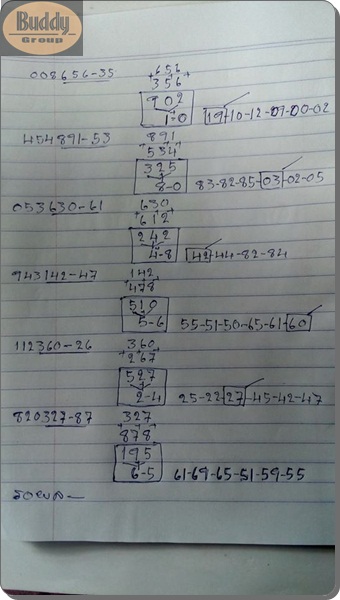 Buddy
Group
008656-35
+656+
356
902
1-0
19-10-12-09-00-02
454891-53
891
+534+
325
8-0
83-82-85-03-02-05
053630-61
630
+612+
242
4-8
42-44-82-84
943142-47
142
+478+
510
5-6
55-51-50-65-61-60
112360-26
360
+267+
527
2-4
25-22-27-45-42-47
820327-87
327
+878+
195
6-5
61-69-65-51-59-55